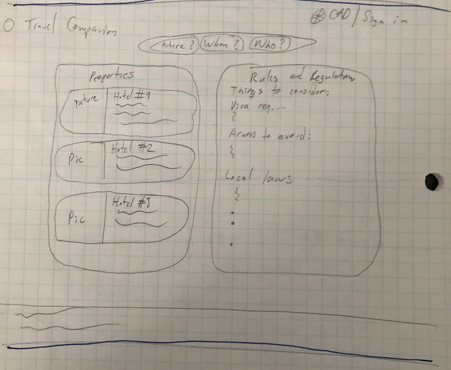 Travel Companion
CAD / Sign in
Where? When? Who?
Properties
Picture
Hotel #1
Pic
Hotel #2
Pic
Hotel #3
Rules and Regulations
Things to consider:
Visa req.
Areas to avoid:
Local laws